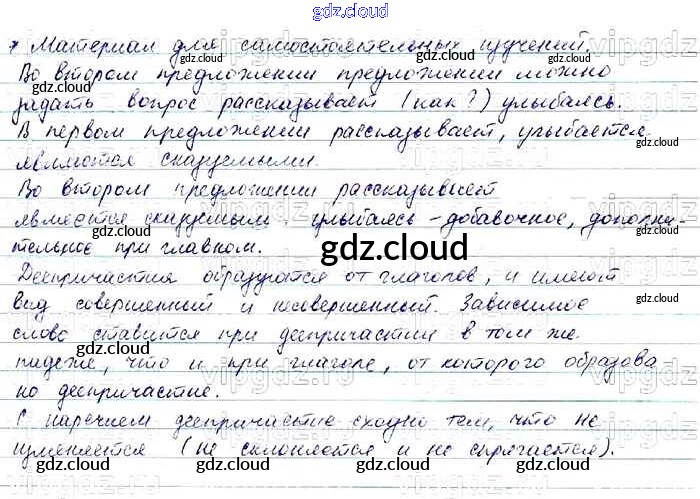 gdz.cloud
* Материал для самостоятельных изучений.
Во втором предложении предложении можно
задать вопрос рассказывает (как?) улыбаясь.
В первом предложении рассказывает, улыбается
являются сказуемыми.
Во втором предложении рассказывает
является сказуемым. улыбаясь - добавочное, дополни-
тельное при главном.
gdz.cloud
Деепричастия образуются от глаголов, и имеют
вид совершенный и несовершенный. Зависимое
слово ставится при деепричастии в том же
падеже, что и при глаголе, от которого образова
но деепричастие.
С наречием деепричастие сходно тем, что не
изменяется (не склоняется и не спрягается).
gdz.cloud gdz.cloud gdz.cloud gdz.cloud